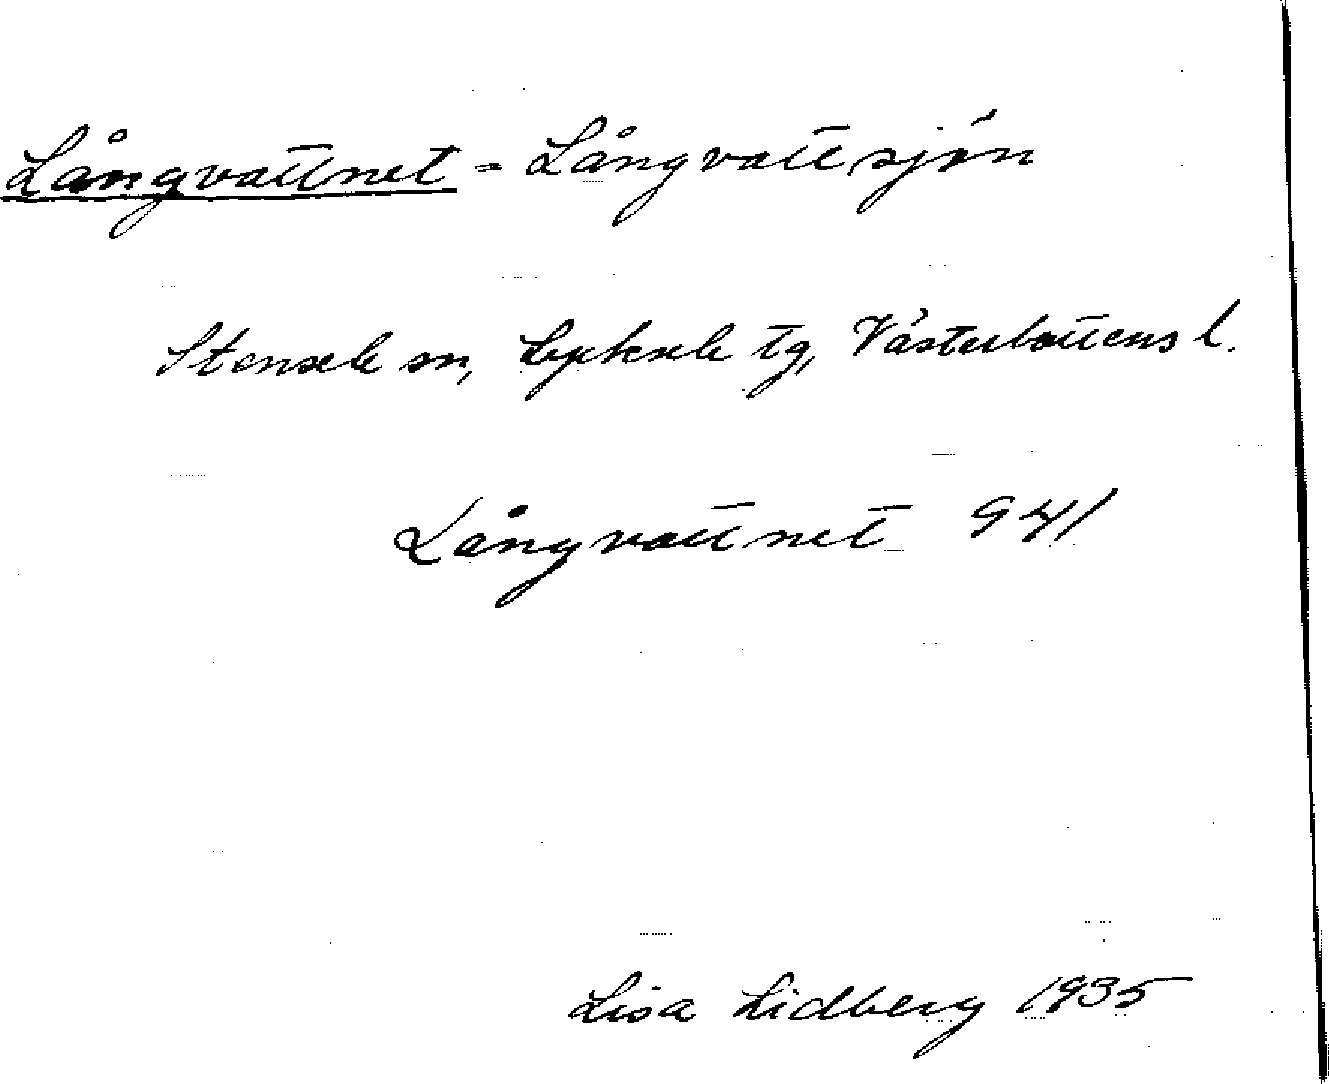 Långvattnet = Långvattsjön
Stensele sn, Lycksele tg, Västerbottens l.
Långvattnet 941
Lisa Lidberg 1935